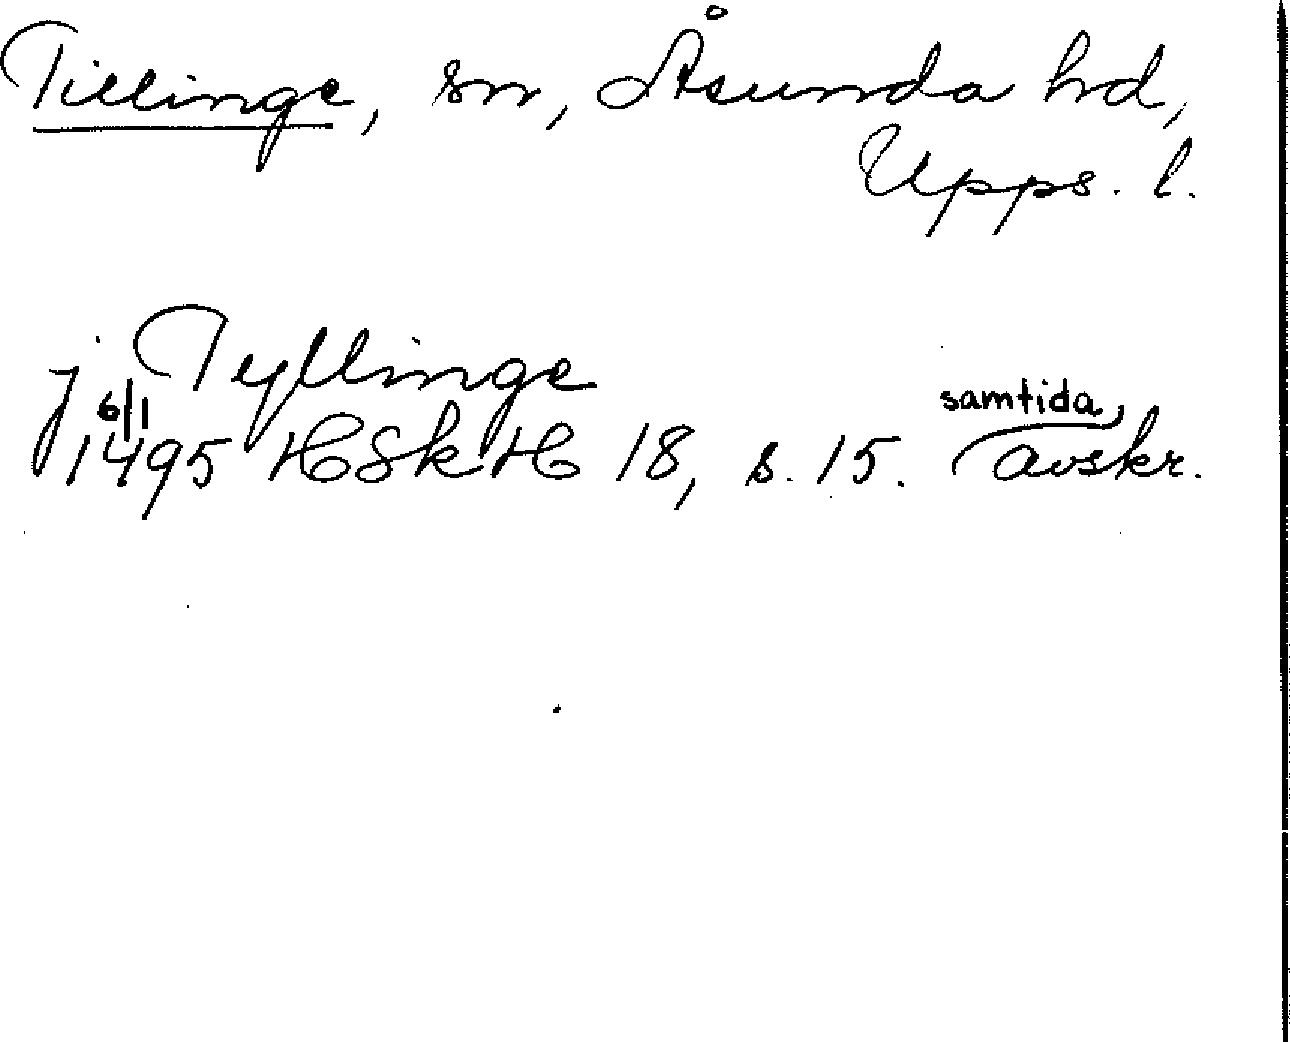 Tillinge, sn, Åsunda hd,
Upps. l.
j Tyllinge
6/1 1495 HSkH 18, s. 15. samtida avskr.